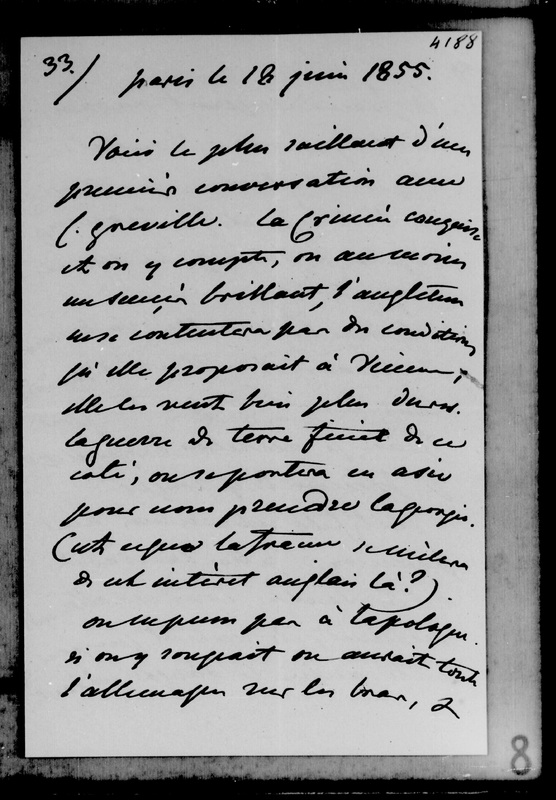 4188
33./ paris le 18 juin 1855.
Voici le plus saillant d'une
première conversation avec
C. greville. La Crimée conquise
et on y compte, ou au moins
un succès brillant, l'angleterre
ne se contentera pas des conditions
qu'elle proposait à Vienne,
elle les veut bien plus dures.
la guerre de terre finie de ce
coté, on se portera en asie
pour nous prendre la georgie.
(est ce que la france se mêlera
de cet intérêt anglais là?)
on ne pense pas à la pologne.
si on y songeait on aurait toute
l'allemagne sur les bras, &
8